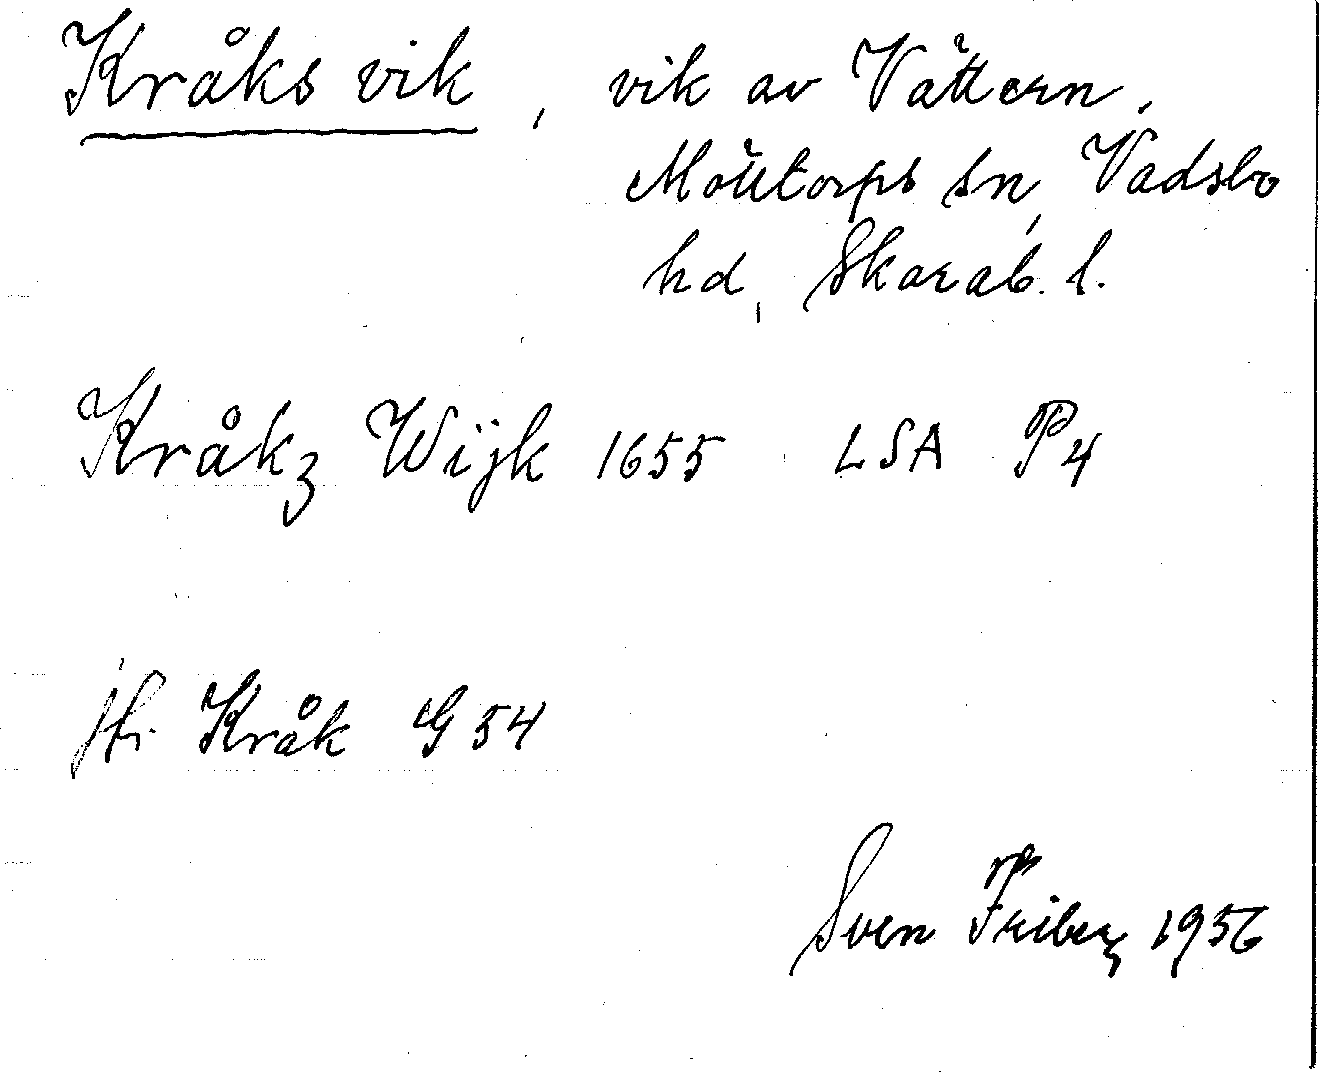 Kråks vik, vik av Vättern,
Mölltorps sn, Vadsbo
hd, Skarab. l.
Kråkz Wijk 1655 LSA P4
jfr Kråk G 54
Sven Friberg 1956